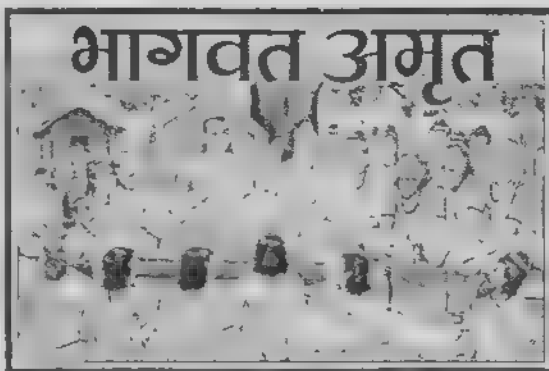 भागवत अमृत